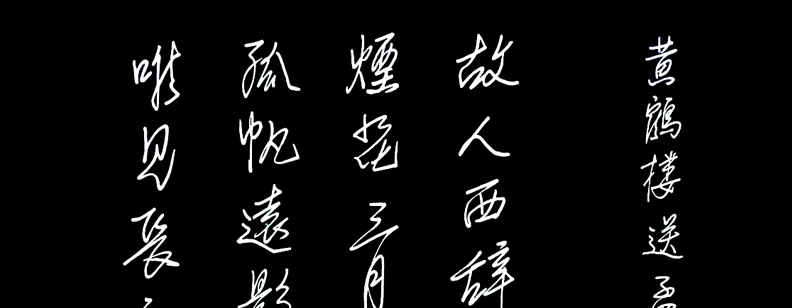 黄鹤楼送孟
故人西辞
煙花三月
孤帆遠影
唯見長